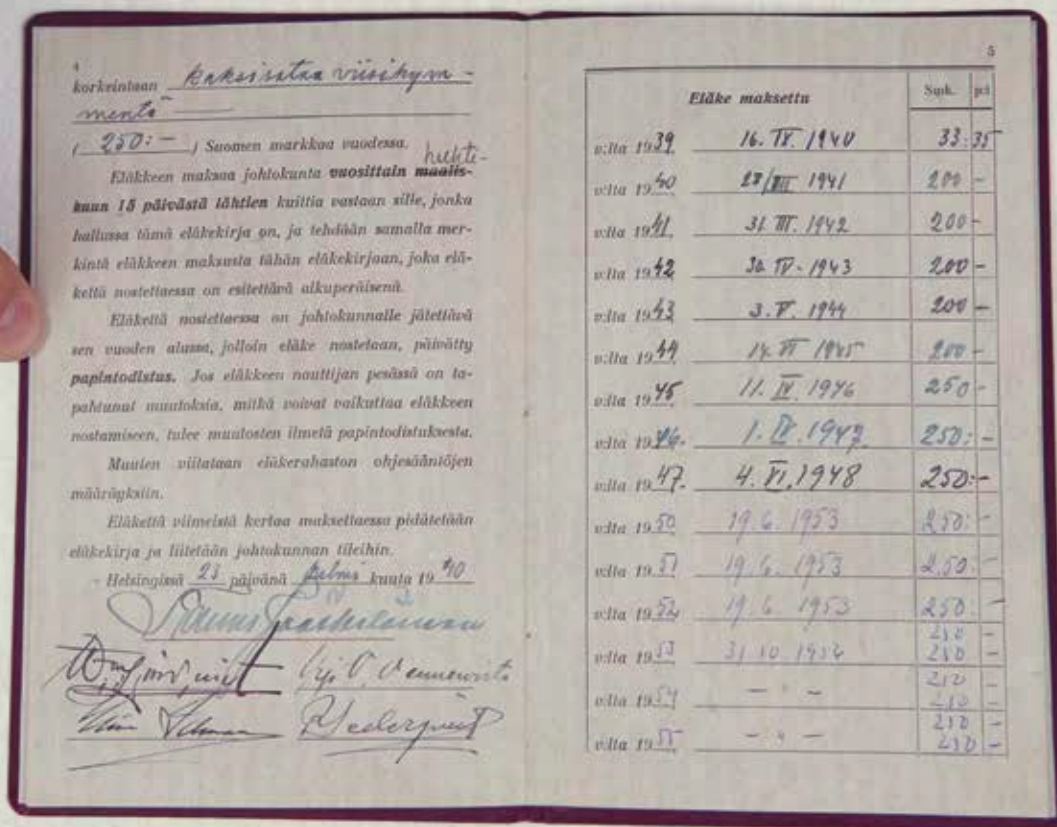 4
korkeintaan kaksisataa viisikym-
mentä
( 250:- ) Suomen markkaa vuodessa.
huhti-
Eläkkeen maksaa johtokunta vuosittain maalis-
kuun 15 päivästä lähtien kuittia vastaan sille, jonka
hallussa tämä eläkekirja on, ja tehdään samalla mer-
kintä eläkkeen maksusta tähän eläkekirjaan, joka elä-
kettä nostettaessa on esitettävä alkuperäisenä.
Eläkettä nostettaessa on johtokunnalle jätettävä
sen vuoden alussa, jolloin eläke nostetaan, päivätty
papintodistus. Jos eläkkeen nauttijan pesässä on ta-
pahtunut muutoksia, mitkä voivat vaikuttaa eläkkeen
nostamiseen, tulee muutosten ilmetä papintodistuksesta.
Muuten viitataan eläkerahaston ohjesääntöjen
määräyksiin.
Eläkettä viimeistä kertaa maksettaessa pidätetään
eläkekirja ja liitetään johtokunnan tileihin.
Helsingissä 23 päivänä helmi kuuta 19 40
5
Eläke maksettu Smk. p:i
v:lta 1939 16. IV. 1940 33:35
v:lta 1940 1941 200 -
v:lta 1941 31. III. 1942 200 -
v:lta 1942 30. IV. 1943 200 -
v:lta 1943 3. V. 1944 200 -
v:lta 1944 14. VI 1945 200 -
v:lta 1945 11. IV. 1946 250 -
v:lta 1946. 1. IV. 1947. 250: -
v:lta 1947. 4. VI. 1948 250: -
v:lta 1950 19.6. 1953 250: -
v:lta 1951 19.6. 1953 250: -
v:lta 1952 19.6. 1953 250: -
v:lta 1953 31.10. 250 -
250 -
v:lta 1954 - " - 250 -
250 -
v:lta 1955 - " - 250 -
250 -